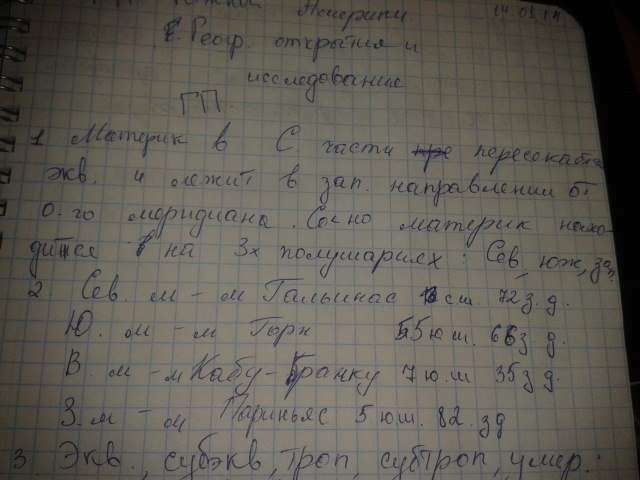 ГП Южной Америки 14.01.14
Геогр. открытия и
исследование
ГП.
1 Материк в С части пересекается
экв. и лежит в зап. направлении от
0-го меридиана. материк нахо-
дится на 3х полушариях: Сев, юж, зап.
2 Сев. м - м Гальинас сш. 72 з. д.
Ю. м - м Горн 55 ю.ш. 66 з д.
В. м - м Кабу-Бранку 7 ю.ш 35 з д.
З. м - м Париньяс 5 юш. 82. зд
3. Экв., субэкв, троп, субтроп, умер.